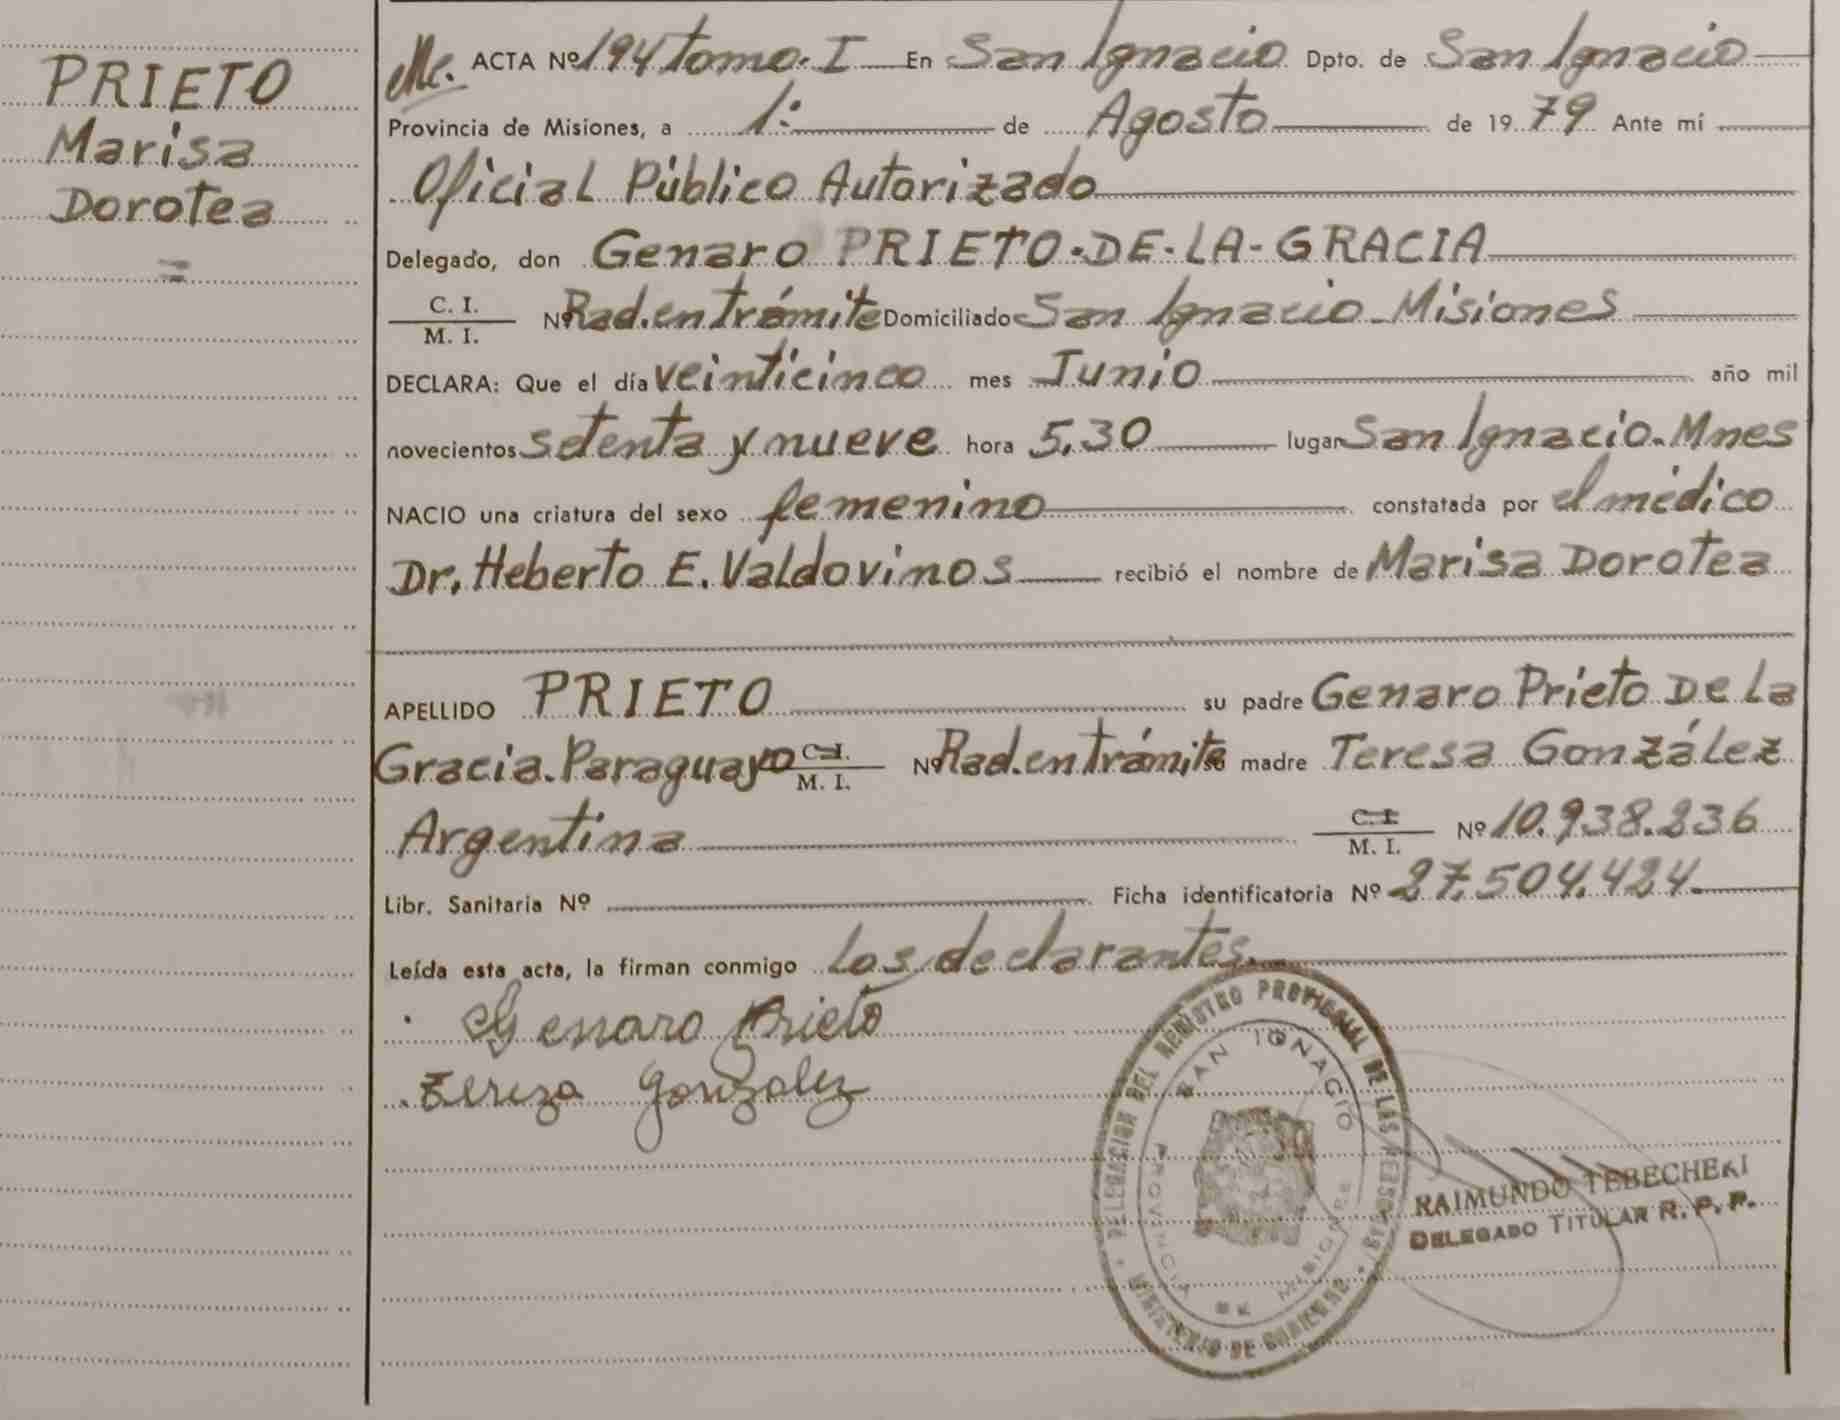 PRIETO
Marisa
Dorotea
=
ACTA Nº 194 tomo. I En San Ignacio Dpto. de San Ignacio
Provincia de Misiones, a 1: de Agosto de 1979 Ante mí
Oficial Público Autorizado
Delegado, don Genaro PRIETO-DE-LA-GRACIA
C. I.
M. I.
Nº Rad. en trámite Domiciliado San Ignacio - Misiones
DECLARA: Que el día veinticinco mes Junio año mil
novecientos setenta y nueve hora 5,30 lugar San Ignacio. Mnes
NACIO una criatura del sexo femenino constatada por el médico
Dr. Heberto E. Valdovinos recibió el nombre de Marisa Dorotea
APELLIDO PRIETO su padre Genaro Prieto De La
Gracia. Paraguayo C. I. M. I. Nº Rad. en trámite su madre Teresa González
Argentina C. I. M. I. Nº 10.938.236
Libr. Sanitaria Nº Ficha identificatoria Nº 27.504.424.
Leída esta acta, la firman conmigo Los declarantes.
Genaro Prieto
Tereza Gonzalez
DELEGACION DEL REGISTRO PROVINCIAL DE LAS PERSONAS
MINISTERIO DE GOBIERNO
SAN IGNACIO
PROVINCIA DE MISIONES
RAIMUNDO TEBECHERI
DELEGADO TITULAR R. P. P.